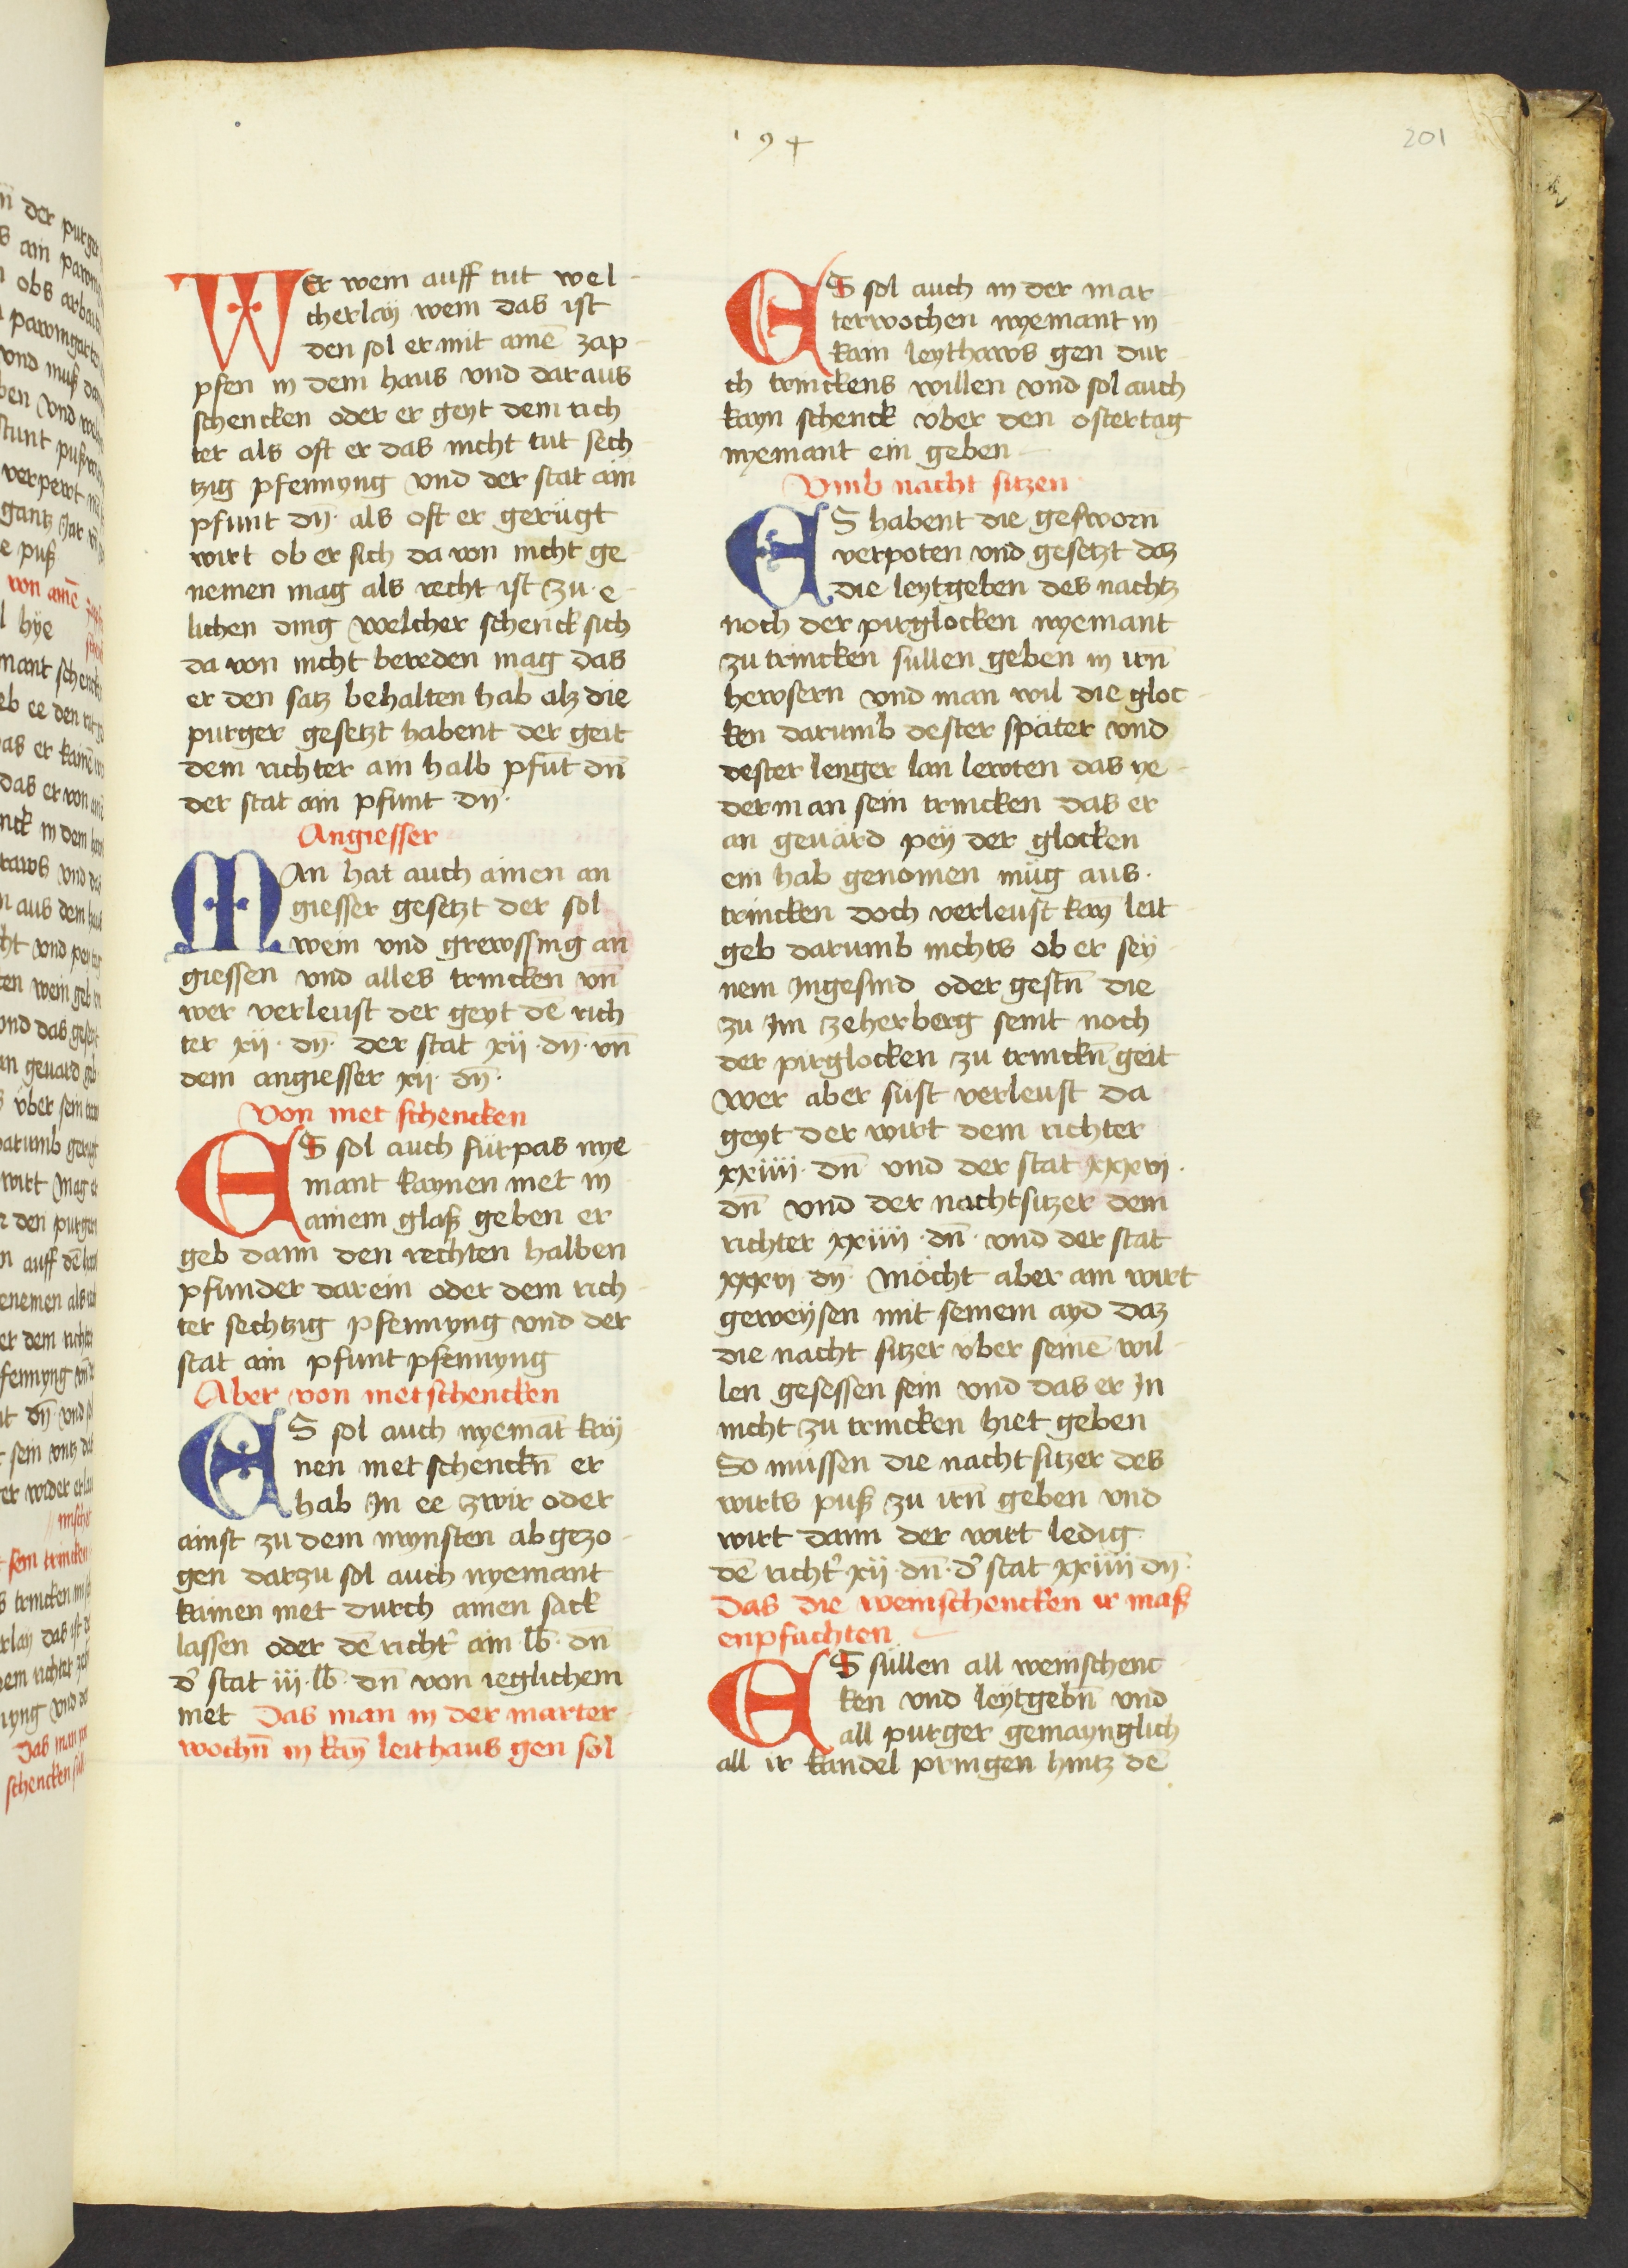 194
201
WEr wein auff tut wel-
cherlaÿ wein das ist
den sol er mit ainē zap-
pfen in dem haus vnd daraus
schencken oder er geyt dem rich
ter als oft er das nicht tut sech-
tzig pfennyng vnd der stat ain
pfunt dn̄· als oft er gerügt
wirt ob er sich da von nicht ge-
nemen mag als recht ist zu e-
lichen ding welcher schenck sich
da von nicht bereden mag das
er den satz behalten hab alz die
purger gesetzt habent der geit
dem richter ain halb pfūt dn̄
der stat ain pfunt dn̄·
Angiesser
MAn hat auch ainen an
giesser gesetzt der sol
wein vnd grewssing an
giessen vnd alles trincken vn̄
wer verleust der geyt dē rich
ter xij· dn̄· der stat xij· dn̄· vn̄
dem angiesser xij· dn̄·
Von met schencken
ES sol auch fürpas nye
mant kaynen met in
ainem glaß geben er
geb dann den rechten halben
pfunder darein oder dem rich-
ter sechtzig pfennyng vnd der
stat ain pfunt pfennyng
Aber von metschencken
ES sol auch nyemāt kaÿ
nen met schenckn̄ er
hab In ee zwir oder
ainst zu dem mynsten abgezo-
gen darzu sol auch nyemant
kainen met durch ainen sack
lassen oder dē richt' ain lb̄· dn̄
d' stat iij· lb̄· dn̄ von ieglichem
met Das man in der marter-
wochn̄ in kaÿ leithaus gen sol
ES sol auch in der mar-
terwochen nyemant in
kain leythaws gen dur-
ch trinckens willen vnd sol auch
kayn schenck vber den ostertag
nyemant ein geben
Vmb nacht sitzen
ES habent die gesworn̄
verpoten vnd gesetzt daz
die leytgeben des nachtz
noch der pirglocken nyemant
zu trincken süllen geben in irn̄
hewsern vnd man wil die gloc-
ken darumb dester spater vnd
dester lenger lan lewten das ye-
derman sein trincken das er
an geuärd peÿ der glocken
ein hab genomen müg aus·
trincken doch verleust kaÿ leit-
geb darumb nichts ob er seÿ-
nem Ingesind oder gestn̄ die
zu Im zeherberg seint noch
der pirglocken zu trinckn̄ geit
wer aber süst verleust da
geyt der wirt dem richter
xxiiij· dn̄ vnd der stat xxxvj·
dn̄ vnd der nachtsitzer dem
richter xxiiij· dn̄· vnd der stat
xxxvj dn̄· Möcht aber ain wirt
geweÿsen mit seinem ayd daz
die nacht sitzer vber seinē wil-
len gesessen sein vnd das er In
nicht zu trincken hiet geben
So müssen die nacht sitzer des
wirts puß zu irn̄ geben vnd
wirt dann der wirt ledig·
dē richt' xij· dn̄· d' stat xxiiij dn̄·
Das die weinschencken ir maß
enpfachten
ES süllen all weinschenc-
ken vnd leÿtgebn̄ vnd
all purger gemaynglich
all ir kandel pringen hintz dē